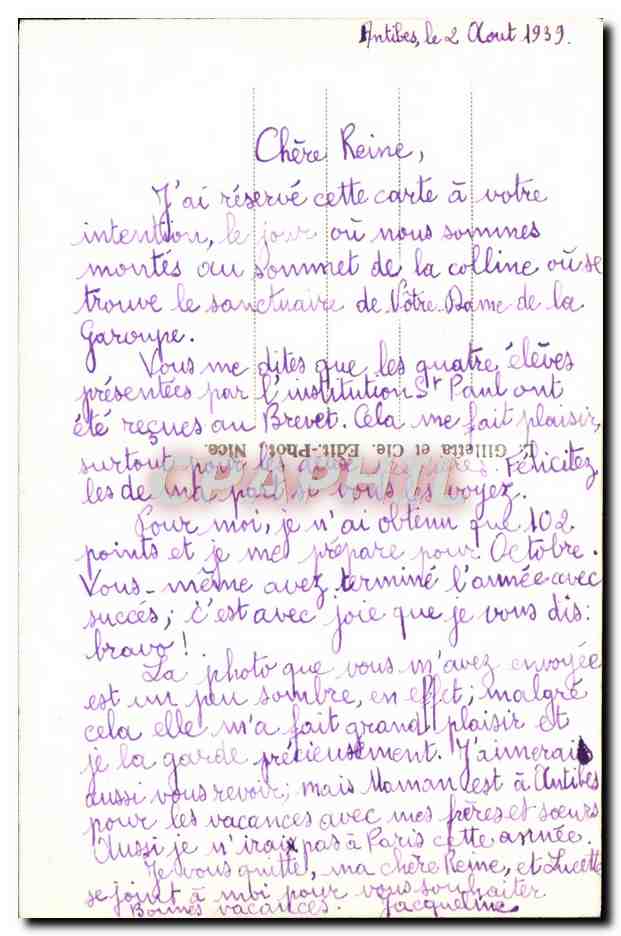 Antibes, le 2 Aout 1939.
Chère Reine,
J'ai réservé cette carte à votre
intention, le jour où nous sommes
montés au sommet de la colline où se
trouve le sanctuaire de Nôtre Dame de la
Garoupe.
Vous me dites que les quatre élèves
présentées par l'institution St Paul ont
été reçues au Brevet. Cela me fait plaisir,
J. Gilletta et Cie. Edit.-Phot. Nice.
surtout pour les deux Félicitez
CPAPHIL
les de ma part si vous les voyez.
Pour moi, je n'ai obtenu que 102
points et je me prépare pour Octobre.
Vous-même avez terminé l'année avec
succés; c'est avec joie que je vous dis:
bravo!
La photo que vous m'avez envoyée
est un peu sombre, en effet; malgré
cela elle m'a fait grand plaisir et
je la garde précieusement. J'aimerais
aussi vous revoir; mais Maman est à Antibes
pour les vacances avec mes frères et sœurs
Aussi je n'irai pas à Paris cette année.
Je vous quitte, ma chère Reine, et Lucette
se joint à moi pour vous souhaiter
Bonnes vacances. Jacqueline